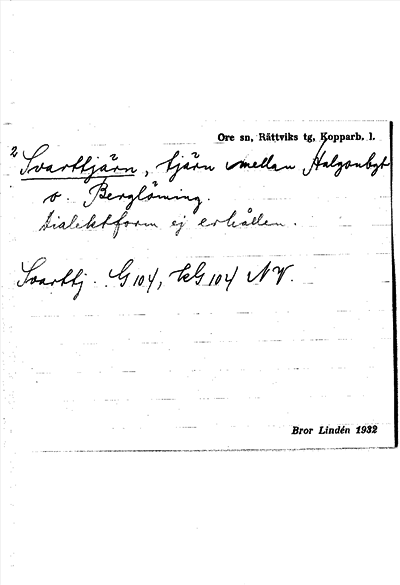 Ore sn, Rättviks tg, Kopparb. l.
2 Svarttjärn, tjärn mellan
o. Berglöning.
Dialektform ej erhållen.
Svarttj. G 104, kG 104 NV.
Bror Lindén 1932